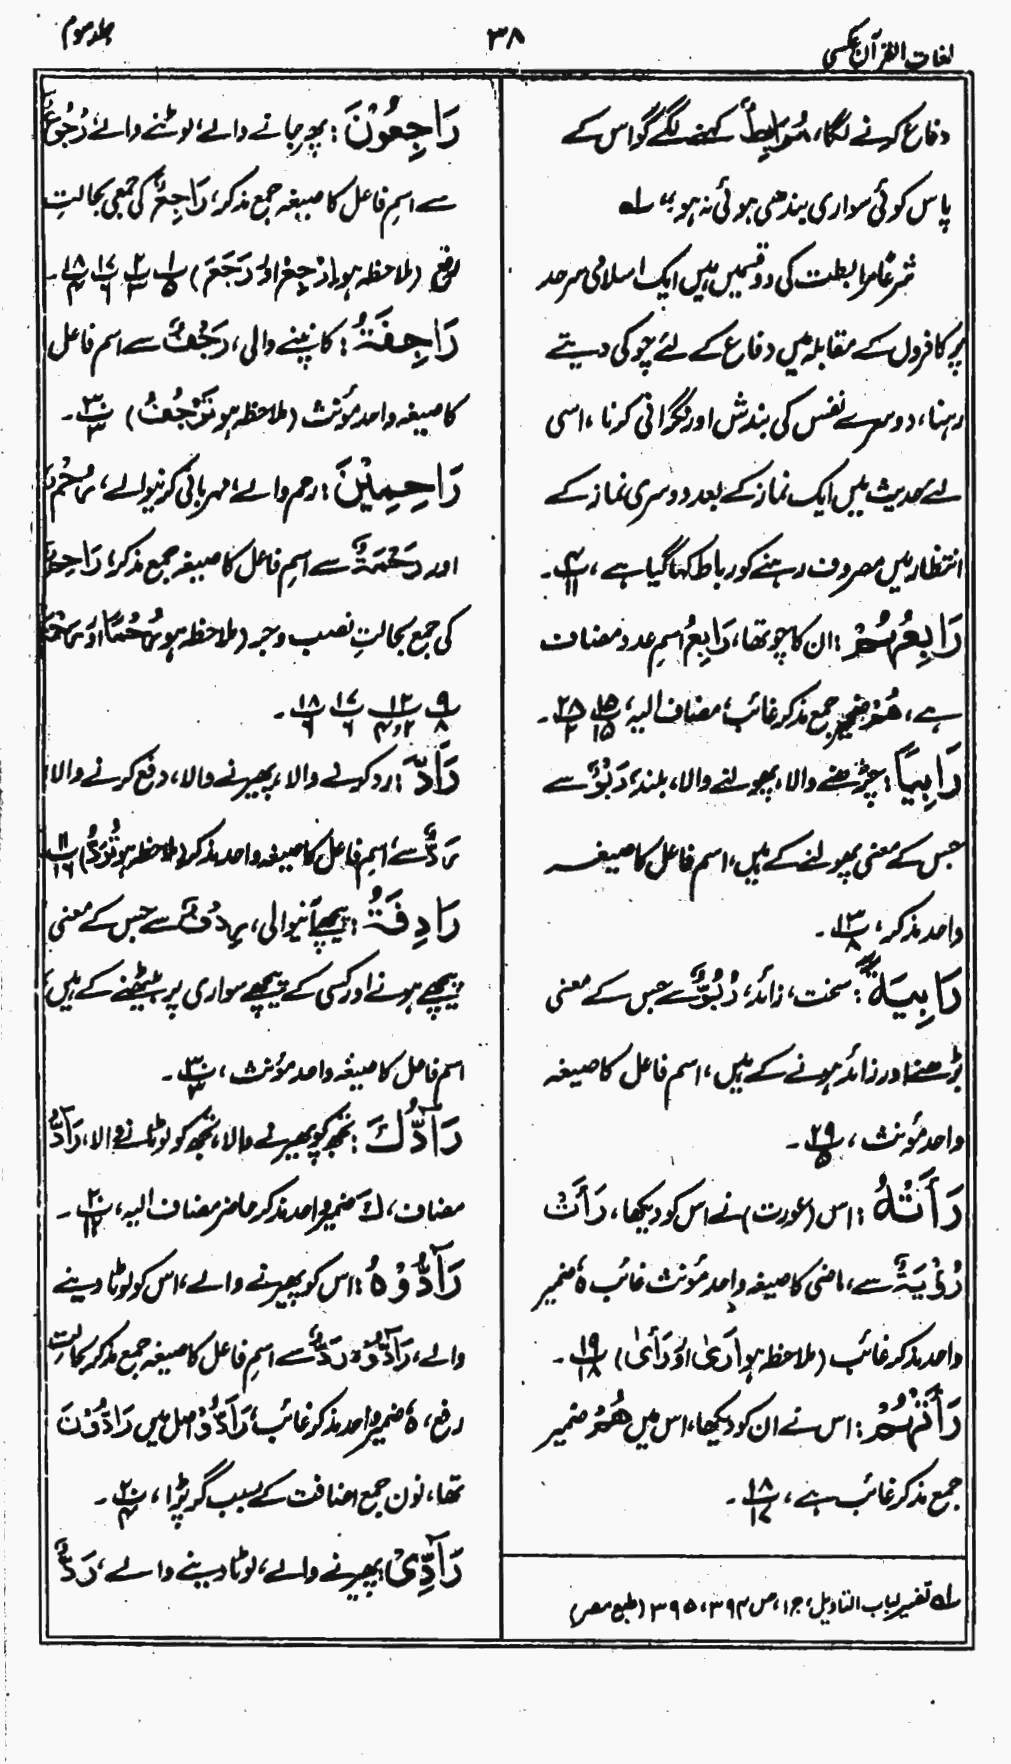 لغات القرآن عکسی
۳۸
جلد سوم
دفاع کرنے لگا، مُرَابِطٌ کہنے لگے گو اس کے
پاس کوئی سواری بندھی ہوئی نہ ہو" لہ
شرعًا مرابطت کی دو قسمیں ہیں ایک اسلامی سرحد
پر کافروں کے مقابلہ میں دفاع کے لئے چوکی دیتے
رہنا، دوسرے نفس کی بندش اور نگرانی کرنا، اسی
لئے حدیث میں ایک نماز کے بعد دوسری نماز کے
انتظار میں مصروف رہنے کو رباط کہا گیا ہے، ۴/۱۱۔
رَابِعُهُمْ: ان کا چوتھا، رَابِعُ اسمِ عدد مضاف
ہے، هُمْ ضمیر جمع مذکر غائب، مضاف الیہ، ۱۵/۱۵ ۲۸/۲۔
رَابِيًا: چڑھنے والا، پھولنے والا، بلند، رَبْوٌ سے
جس کے معنی پھولنے کے ہیں، اسم فاعل کا صیغہ
واحد مذکر، ۱۳/۸۔
رَابِيَةً: سخت، زائد، رُبُوٌّ سے جس کے معنی
بڑھنے اور زائد ہونے کے ہیں، اسم فاعل کا صیغہ
واحد مؤنث، ۲۹/۵۔
رَأَتْهُ: اس (عورت) نے اس کو دیکھا، رَأَتْ
رُؤْيَةٌ سے، ماضی کا صیغہ واحد مؤنث غائب ہٗ ضمیر
واحد مذکر غائب (ملاحظہ ہو اَرىٰ اور رَأىٰ) ۱۹/۱۸۔
رَأَتْهُمْ: اس نے ان کو دیکھا، اس میں هُمْ ضمیر
جمع مذکر غائب ہے، ۱۸/۱۷۔
لہ تفسیر لباب التاویل، ج۱، ص ۳۹۴، ۳۹۵ (طبع مصر)
رَاجِعُوْنَ: پھر جانے والے، لوٹنے والے، رُجُوْعٌ
سے اسمِ فاعل کا صیغہ جمع مذکر، رَاجِعٌ کی جمع بحالتِ
رفع (ملاحظہ ہو اِرْجِعْ اور رَجَعَ) ۱/۵ ۲/۳ ۱۷/۶ ۱۸/۴۔
رَاجِفَةُ: کانپنے والی، رَجْفٌ سے اسم فاعل
کا صیغہ واحد مؤنث (ملاحظہ ہو تَرْجُفُ) ۳۰/۳۔
رَاحِمِيْنَ: رحم والے، مہربانی کرنیوالے، رُحْمٌ
اور رَحْمَةٌ سے اسمِ فاعل کا صیغہ جمع مذکر، رَاحِمٌ
کی جمع بحالتِ نصب و جر (ملاحظہ ہو رُحْمًا اور
۹/۸ ۱۳/۲و۴ ۱۷/۶ ۱۸/۶۔
رَآدَّ: رد کرنے والا، پھیرنے والا، دفع کرنے والا،
رَدٌّ سے، اسمِ فاعل کا صیغہ واحد مذکر (ملاحظہ ہو تُرَدُّ) ۱۱/۱۶
رَادِفَةُ: پیچھے آنیوالی، رِدْفٌ سے جس کے معنی
پیچھے ہونے اور کسی کے پیچھے سواری پر بیٹھنے کے ہیں،
اسم فاعل کا صیغہ واحد مؤنث، ۳۰/۳۔
رَآدُّكَ: تجھ کو پھیرنے والا، تجھ کو لوٹانے والا، رَآدُّ
مضاف، كَ ضمیر واحد مذکر حاضر مضاف الیہ، ۲۰/۱۲۔
رَآدُّوْهُ: اس کو پھیرنے والے، اس کو لوٹا دینے
والے، رَآدُّوْ، رَدٌّ سے اسمِ فاعل کا صیغہ جمع مذکر بحالتِ
رفع، ہٗ ضمیر واحد مذکر غائب، رَآدُّوْ اصل میں رَآدُّوْنَ
تھا، نون جمع اضافت کے سبب گر پڑا، ۲۰/۴۔
رَآدِّىْ: پھیرنے والے، لوٹا دینے والے، رَدٌّ